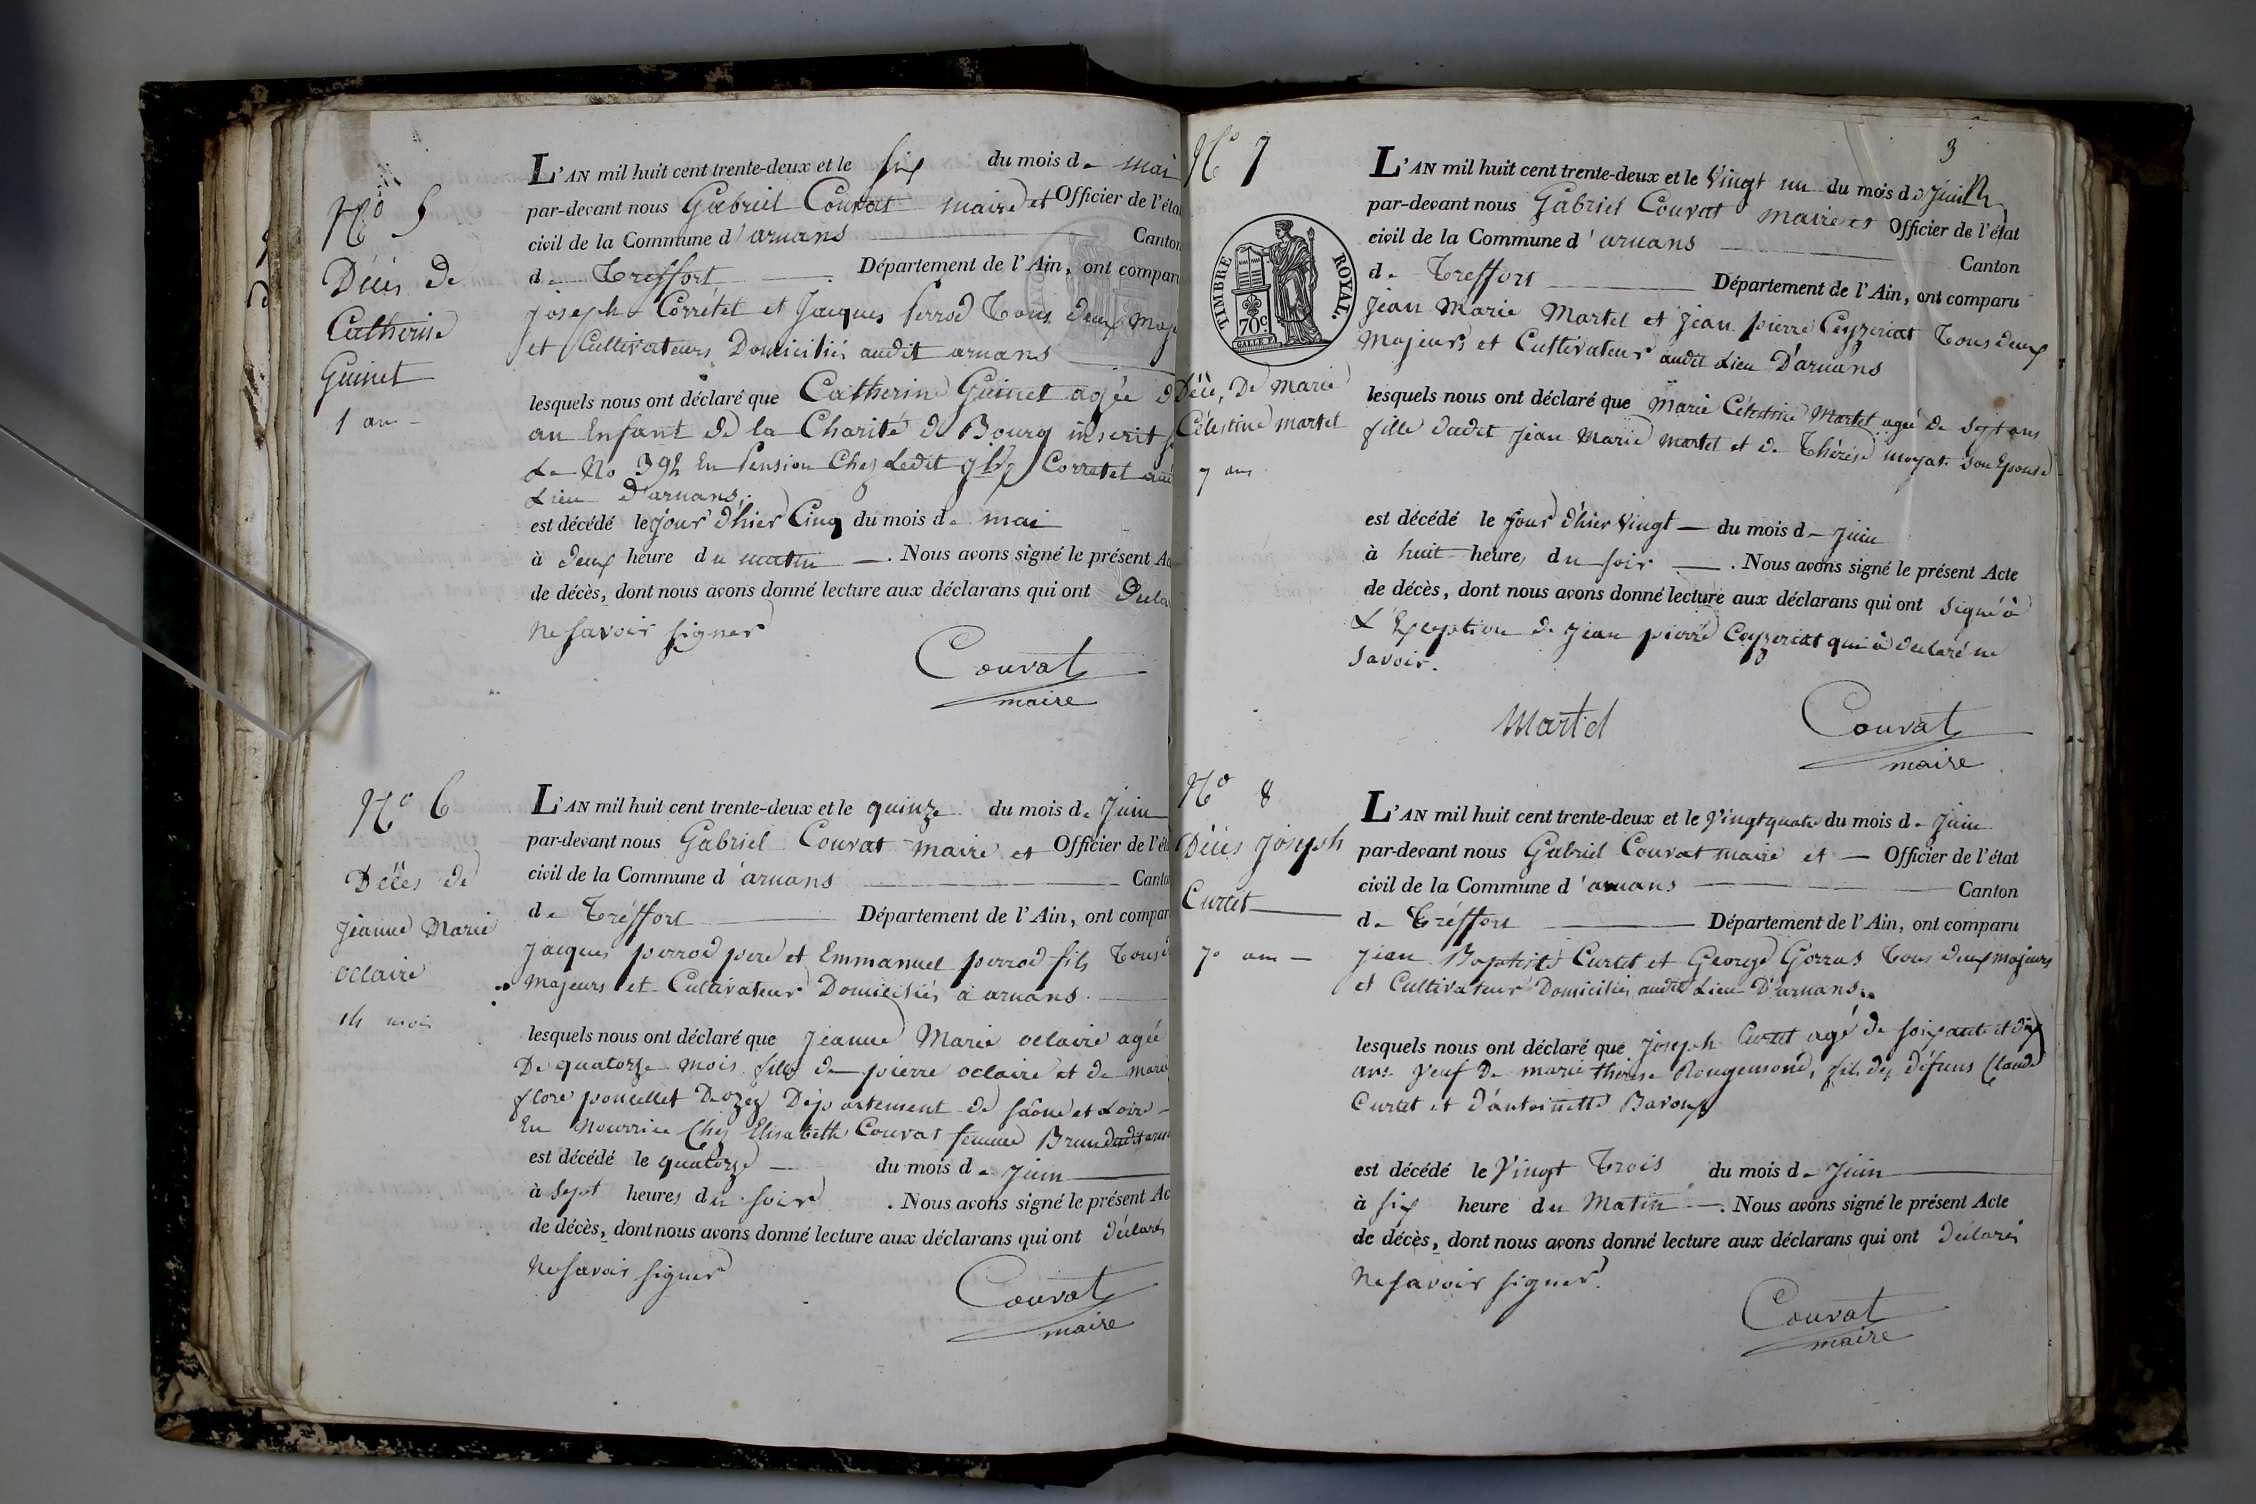 N° 5
Décès de
Catherine
Guinet
1 an
L'AN mil huit cent trente-deux et le six du mois de mai
par-devant nous Gabriel Couvat maire et Officier de l'éta
civil de la Commune d'arnans Canton
de Treffort Département de l'Ain, ont compar
joseph Corrétet et Jacques perrod Tous deux Maj
et Cultivateurs Domiciliés audit arnans
lesquels nous ont déclaré que Catherine Guinet agée d
an Enfant de la Charité de Bourg inscrit
Le No 394 En Pension Chez Ledit Corretet
Lieu D'arnans.
est décédé le jour d'hier Cinq du mois de mai
à deux heure du matin. Nous avons signé le présent Ac
de décès, dont nous avons donné lecture aux déclarans qui ont Décla
Ne savoir signer
Couvat
maire
N° 6
Décès de
Jeanne Marie
oclaire
14 mois
L'AN mil huit cent trente-deux et le quinze du mois de Juin
par-devant nous Gabriel Couvat maire et Officier de l'éta
civil de la Commune d'arnans Canto
de Tréffort Département de l'Ain, ont compar
Jacques perrod pere et Emmanuel perrod fils Tous d
Majeurs et Cultivateurs Domiciliés à arnans.
lesquels nous ont déclaré que Jeanne Marie oclaire agée
De quatorze mois fille de pierre oclaire et de marie
flore poncellet Département de saône et Loire
En Nourrice Chez Elisabeth Couvat femme Brun dudit arn
est décédé le quatorze du mois de Juin
à Sept heures du soir. Nous avons signé le présent Ac
de décès, dont nous avons donné lecture aux déclarans qui ont déclarés
Ne savoir signer
Couvat
maire
3
N° 7
TIMBRE ROYAL.
70c
Décè, De Marie
Célestine martel
7 ans
L'AN mil huit cent trente-deux et le Vingt un du mois de Juin
par-devant nous Gabriel Couvat maire et Officier de l'état
civil de la Commune d'arnans Canton
de Treffort Département de l'Ain, ont comparu
Jean Marie Martel et jean pierre Ceyzeriat Tous deux
Majeurs et Cultivateur audit Lieu D'arnans
lesquels nous ont déclaré que Marie Célestine Martel agée de Sept ans
fille dudit jean Marie martel et de Thérèse moyat son Epouse
est décédé le jour d'hier Vingt du mois de Juin
à huit heures du soir. Nous avons signé le présent Acte
de décès, dont nous avons donné lecture aux déclarans qui ont Signé à
L'Exception de jean pierre Ceyzeriat qui à déclaré ne
Savoir.
Martel
Couvat
maire
N° 8
Décès joseph
Curtet
70 ans
L'AN mil huit cent trente-deux et le Vingtquatre du mois de Juin
par-devant nous Gabriel Couvat maire et Officier de l'état
civil de la Commune d'arnans Canton
de Tréffort Département de l'Ain, ont comparu
jean Baptiste Curtet et George Gorras Tous deux majeurs
et Cultivateur Domiciliés audit Lieu D'arnans.
lesquels nous ont déclaré que joseph Curtet agé de soixante et dix
ans Veuf De marie therese Rougemond, fils des défuns Claude
Curtet et d'antoinette Baroux
est décédé le Vingt Trois du mois de Juin
à six heure du Matin. Nous avons signé le présent Acte
de décès, dont nous avons donné lecture aux déclarans qui ont déclarés
Ne savoir signer.
Couvat
maire